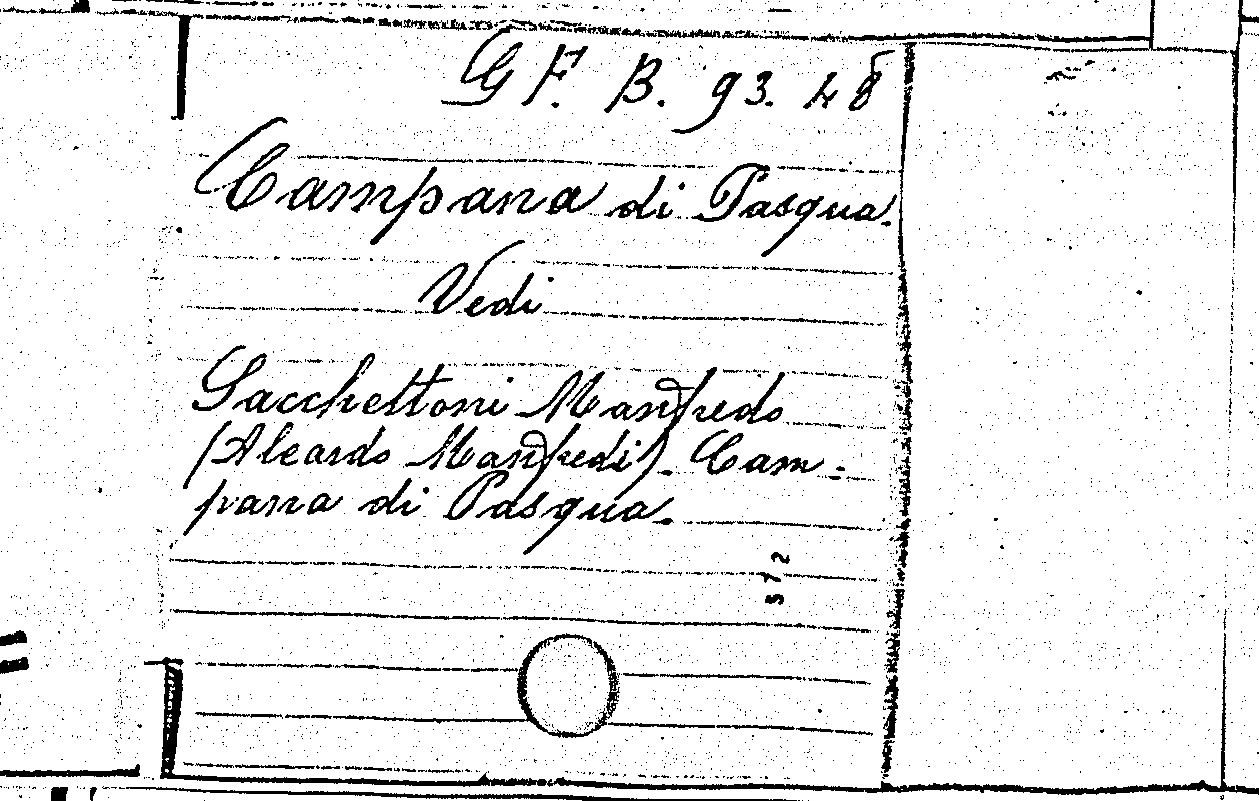 G F. B. 93. 48
Campana di Pasqua.
Vedi
Sacchettoni Manfredo
(Aleardo Manfredi). Cam-
pana di Pasqua.
572